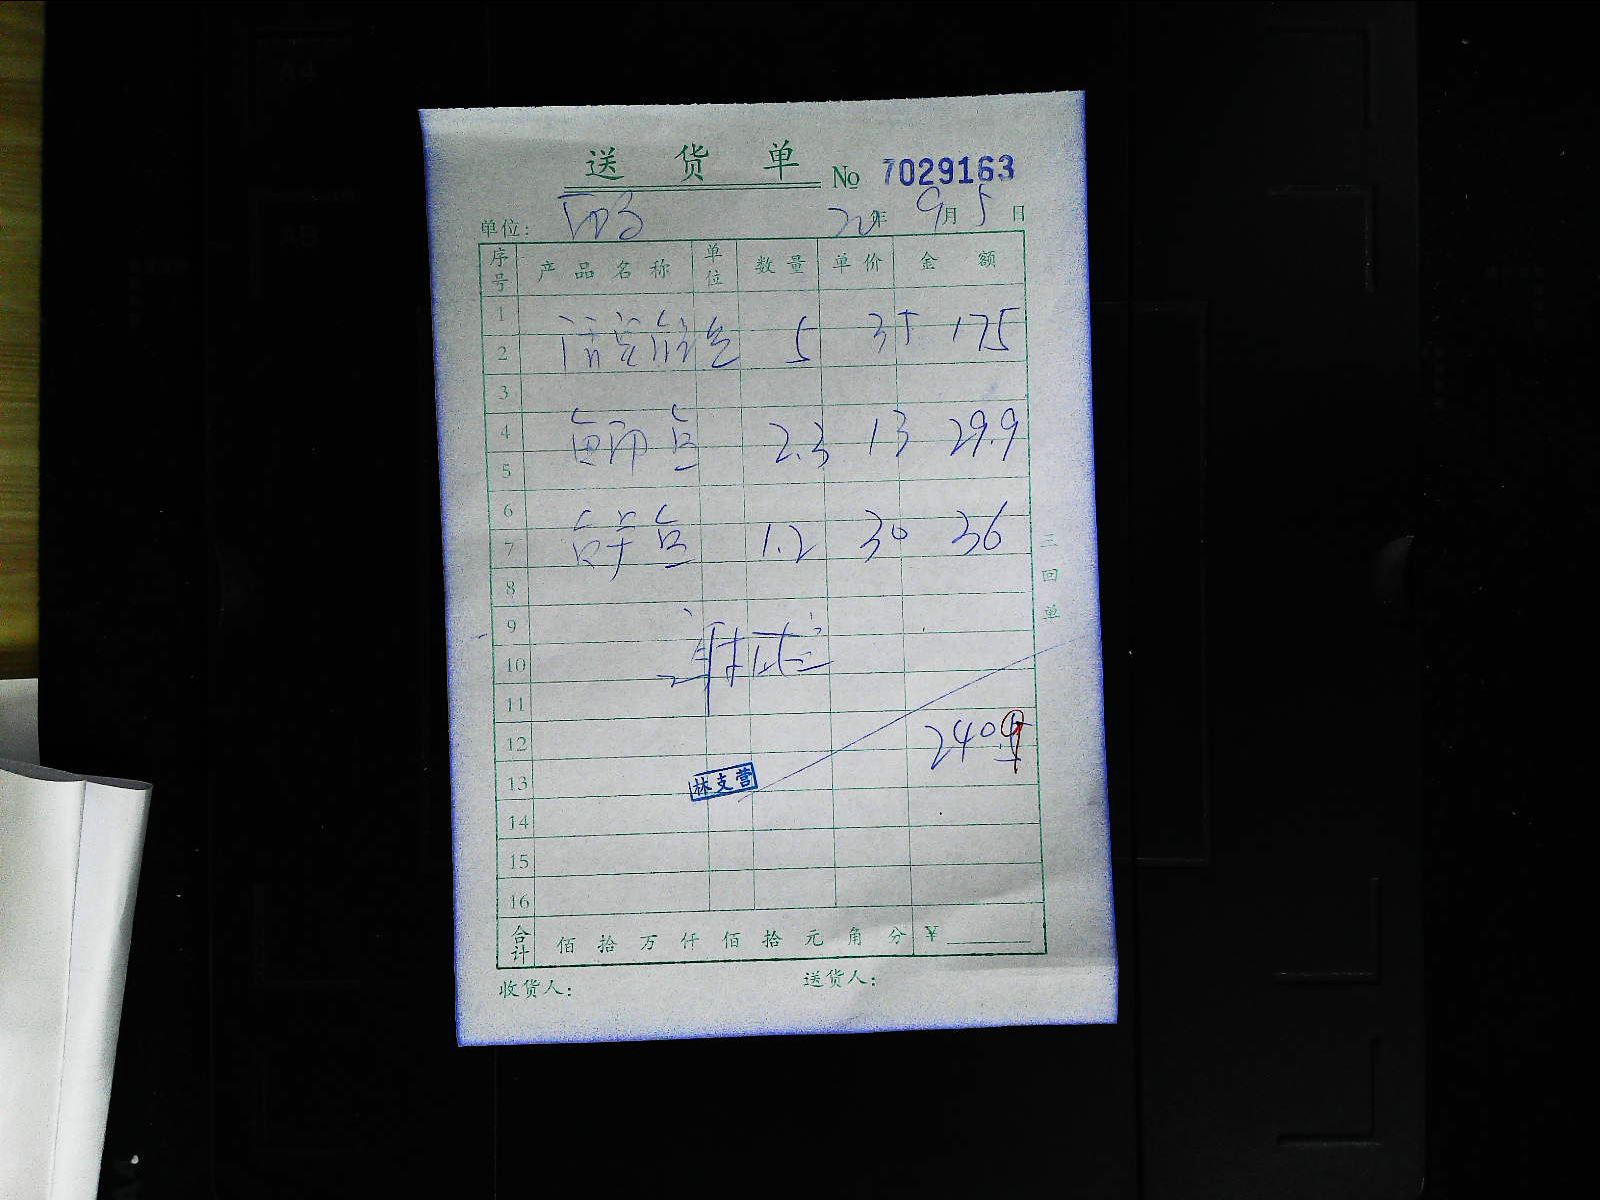 送 货 单 No 7029163
单位： 20年 9月 5日
序号 产品名称 单位 数量 单价 金 额
1
2 鱼 5 35 175
3
4 鱼 2.3 13 29.9
5
6
7 鱼 1.2 30 36
8
9
10 谢
11
12 240.9
13 林支营
14
15
16
合计 佰 拾 万 仟 佰 拾 元 角 分 ¥
收货人： 送货人：
三回单
A4